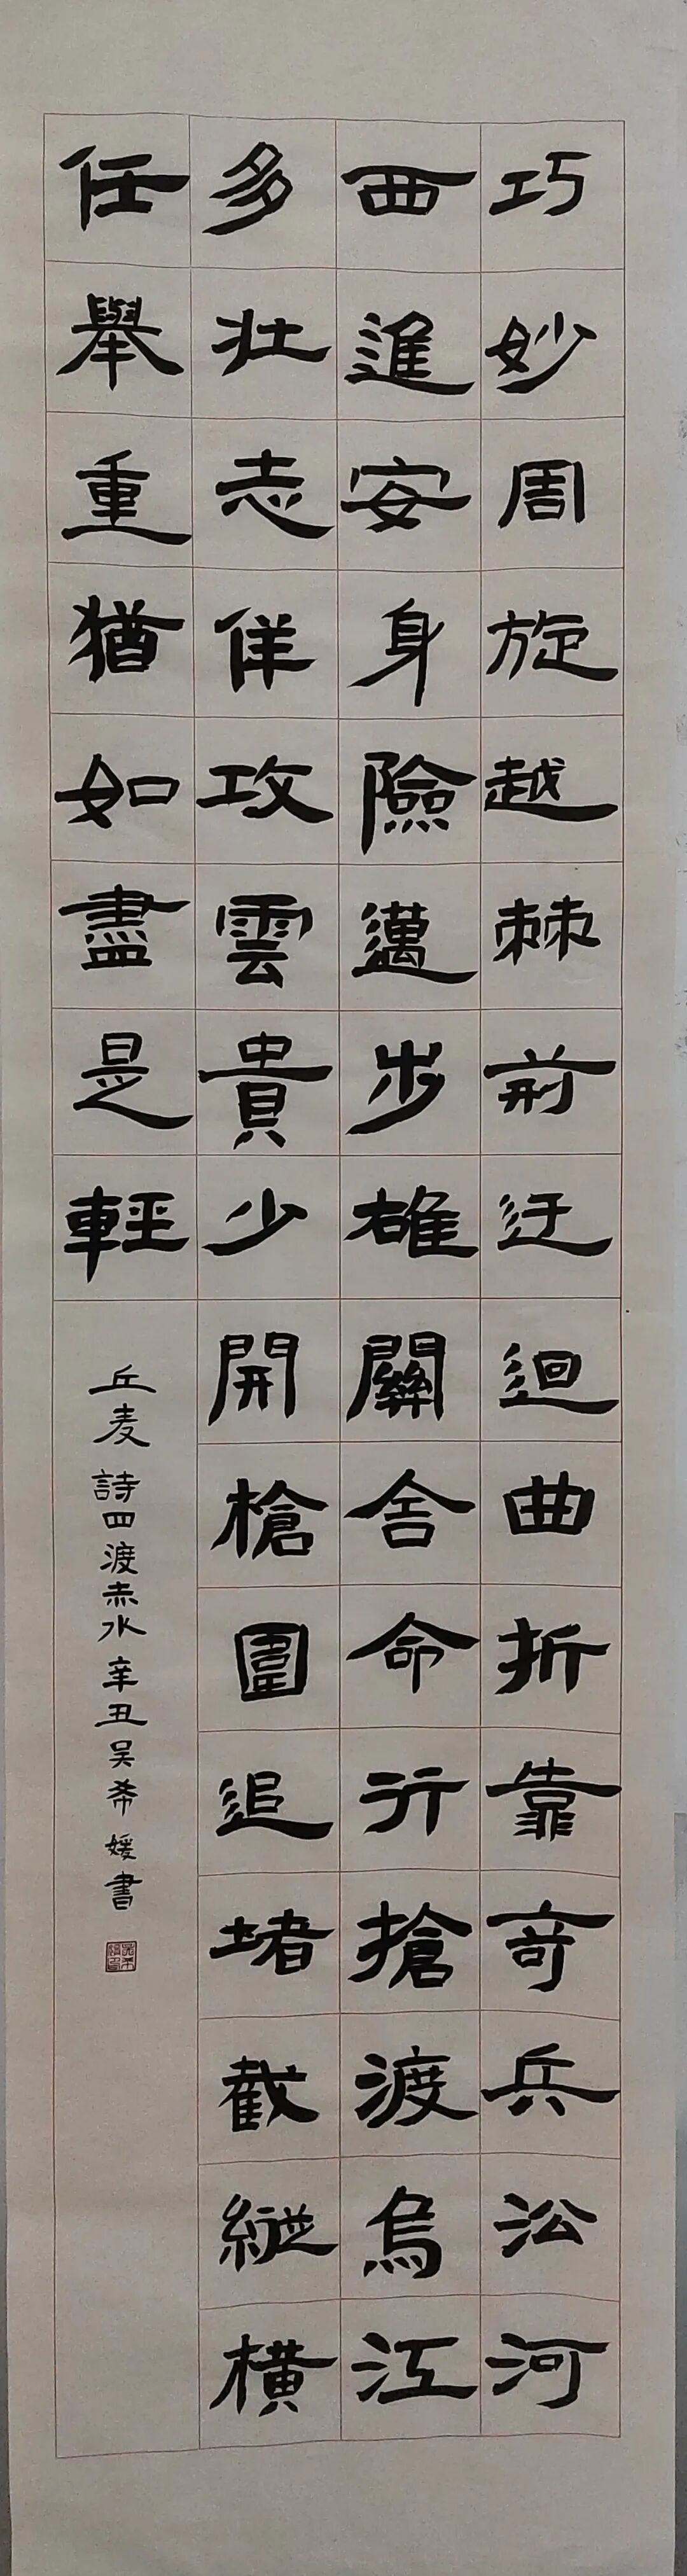 巧妙周旋越棘荊迂迴曲折靠奇兵㳂河
西進安身險邁步雄關舍命行搶渡烏江
多壯志佯攻雲貴少開槍圍追堵截縱橫
任舉重猶如盡是輕
丘麦詩四渡赤水辛丑吴希媛書